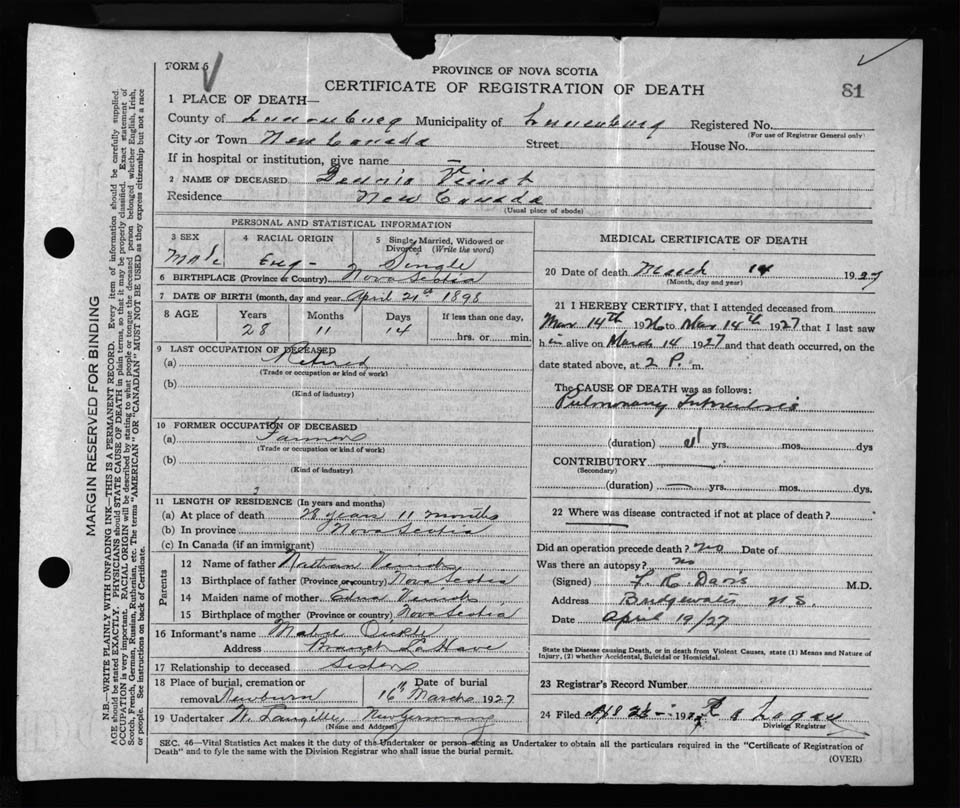 FORM 5
PROVINCE OF NOVA SCOTIA
CERTIFICATE OF REGISTRATION OF DEATH
81
1 PLACE OF DEATH—
County of Lunenburg Municipality of Lunenburg Registered No.
(For use of Registrar General only)
City or Town New Canada Street House No.
If in hospital or institution, give name —
2 NAME OF DECEASED Dennis Veinot
Residence New Canada
(Usual place of abode)
PERSONAL AND STATISTICAL INFORMATION
3 SEX 4 RACIAL ORIGIN 5 Single, Married, Widowed or Divorced (Write the word)
Male Eng- Single
6 BIRTHPLACE (Province or Country) Nova Scotia
7 DATE OF BIRTH (month, day and year) April 21st 1898
8 AGE Years Months Days If less than one day,
28 11 14 hrs. or min.
9 LAST OCCUPATION OF DECEASED
(a) Retired
(Trade or occupation or kind of work)
(b)
(Kind of industry)
10 FORMER OCCUPATION OF DECEASED
(a) Farmer
(Trade or occupation or kind of work)
(b)
(Kind of industry)
11 LENGTH OF RESIDENCE (In years and months)
(a) At place of death 28 years 11 months
(b) In province Nova Scotia
(c) In Canada (if an immigrant)
Parents
12 Name of father Nathan
13 Birthplace of father (Province or country) Nova Scotia
14 Maiden name of mother Edna
15 Birthplace of mother (Province or country) Nova Scotia
16 Informant's name Mabel
Address Branch LaHave
17 Relationship to deceased Sister
18 Place of burial, cremation or removal Newburn
Date of burial
16th March 1927
19 Undertaker W. Langille, New Germany
(Name and Address)
MEDICAL CERTIFICATE OF DEATH
20 Date of death March 14 1927
(Month, day and year)
21 I HEREBY CERTIFY, that I attended deceased from
Mar 14th 1926 to Mar 14th 1927 that I last saw
him alive on March 14 1927 and that death occurred, on the
date stated above, at 2 P. m.
The CAUSE OF DEATH was as follows:
Pulmonary Tuberculosis
(duration) yrs. mos. dys
CONTRIBUTORY
(Secondary)
(duration) yrs. mos. dys.
22 Where was disease contracted if not at place of death?
Did an operation precede death? no Date of
Was there an autopsy? no
(Signed) F. R. Davis M.D.
Address Bridgewater N.S.
Date April 19/27
State the Disease causing Death, or in death from Violent Causes, state (1) Means and Nature of
Injury, (2) whether Accidental, Suicidal or Homicidal.
23 Registrar's Record Number
24 Filed 192
Division Registrar
SEC. 46—Vital Statistics Act makes it the duty of the Undertaker or person acting as Undertaker to obtain all the particulars required in the "Certificate of Registration of
Death" and to file the same with the Division Registrar who shall issue the burial permit.
(OVER)
MARGIN RESERVED FOR BINDING
N.B.—WRITE PLAINLY WITH UNFADING INK—THIS IS A PERMANENT RECORD. Every item of information should be carefully supplied.
AGE should be stated EXACTLY. PHYSICIANS should STATE CAUSE OF DEATH in plain terms, so that it may be properly classified. Exact statement of
OCCUPATION is very important. RACIAL ORIGIN will be described by stating to what people or tongue the deceased person belonged whether English, Irish,
Scotch, French, German, Russian, Ruthenian, etc. The terms "AMERICAN" OR "CANADIAN" MUST NOT BE USED as they express citizenship but not a race
or people. See instructions on back of Certificate.